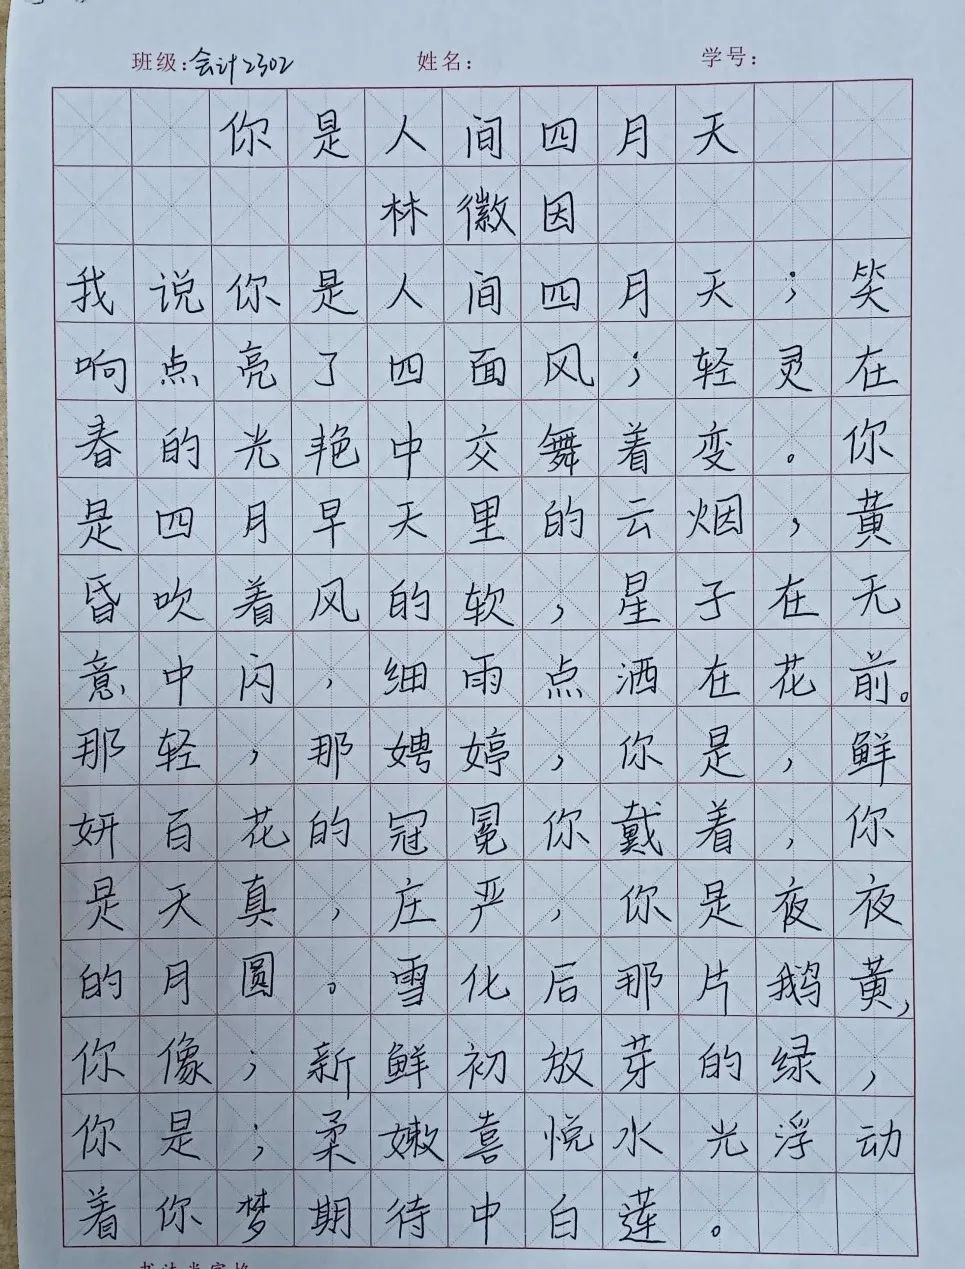 班级:会计2302 姓名: 学号:
你是人间四月天
林徽因
我说你是人间四月天;笑
响点亮了四面风;轻灵在
春的光艳中交舞着变。你
是四月早天里的云烟,黄
昏吹着风的软,星子在无
意中闪,细雨点洒在花前。
那轻,那娉婷,你是,鲜
妍百花的冠冕你戴着,你
是天真,庄严,你是夜夜
的月圆。雪化后那片鹅黄,
你像;新鲜初放芽的绿,
你是;柔嫩喜悦水光浮动
着你梦期待中白莲。